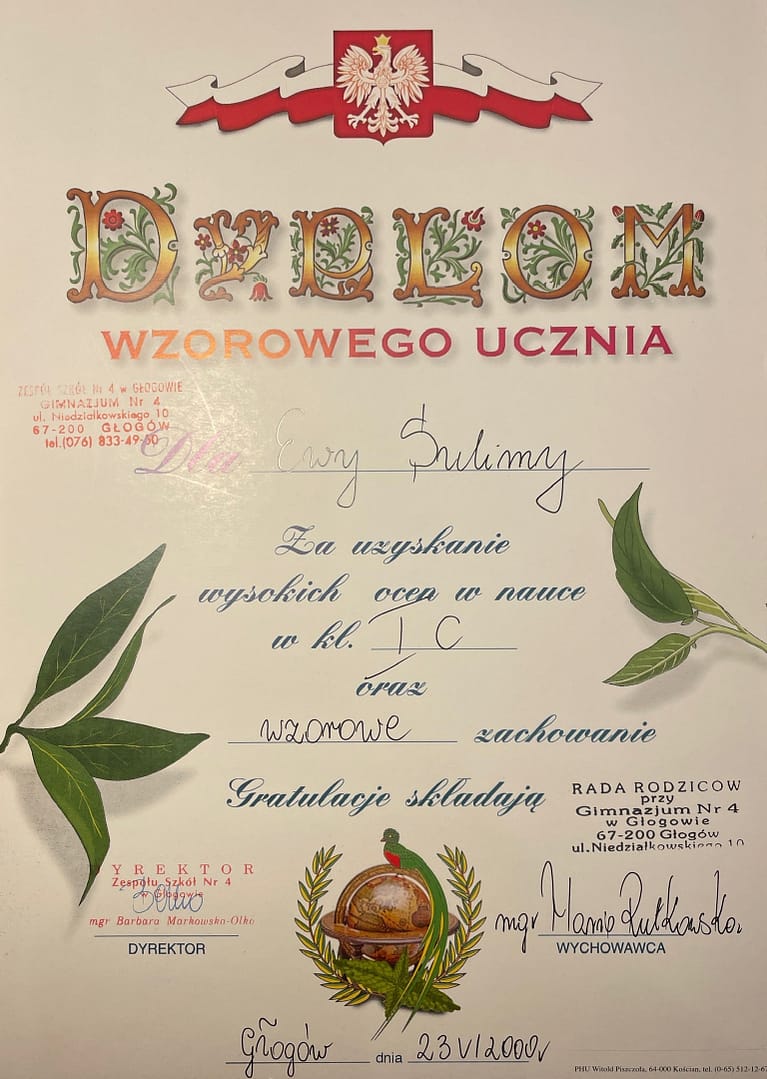 DYPLOM
WZOROWEGO UCZNIA
ZESPÓŁ SZKÓŁ Nr 4 w GŁOGOWIE
GIMNAZJUM Nr 4
ul. Niedziałkowskiego 10
67-200 GŁOGÓW
tel.(076) 833-49-60
Dla Ewy Sulimy
Za uzyskanie
wysokich ocen w nauce
w kl. I C
oraz
wzorowe zachowanie
Gratulacje składają
RADA RODZICÓW
przy
Gimnazjum Nr 4
w Głogowie
67-200 Głogów
ul. Niedziałkowskiego 10
DYREKTOR
Zespołu Szkół Nr 4
w Głogowie
mgr Barbara Markowska-Olko
DYREKTOR
mgr Maria Rutkowska
WYCHOWAWCA
Głogów dnia 23 VI 2000r
PHU Witold Piszczoła, 64-000 Kościan, tel. (0-65) 512-12-67